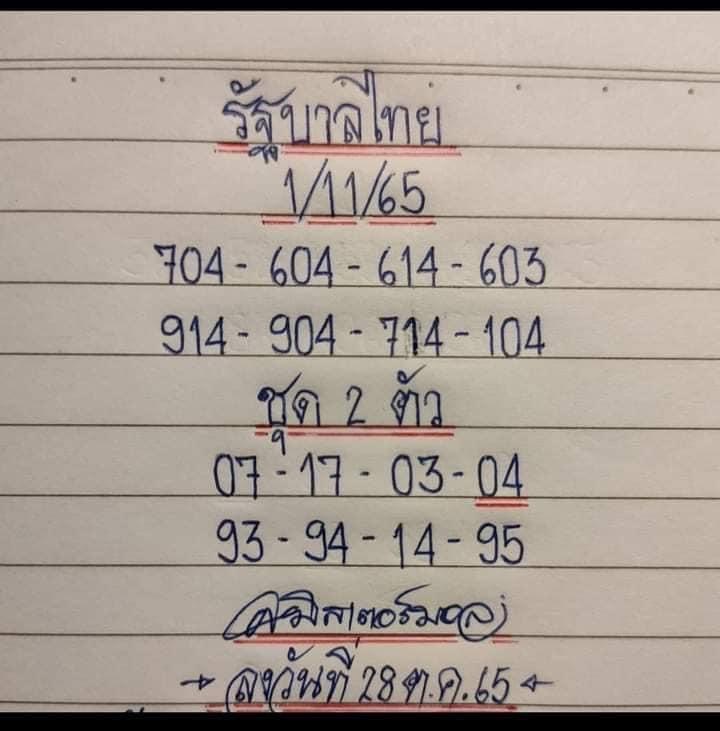 รัฐบาลไทย
1/11/65
704 - 604 - 614 - 603
914 - 904 - 714 - 104
ชุด 2 ตัว
07 - 17 - 03 - 04
93 - 94 - 14 - 95
→ ลงวันที่ 28 ต.ค. 65 ←